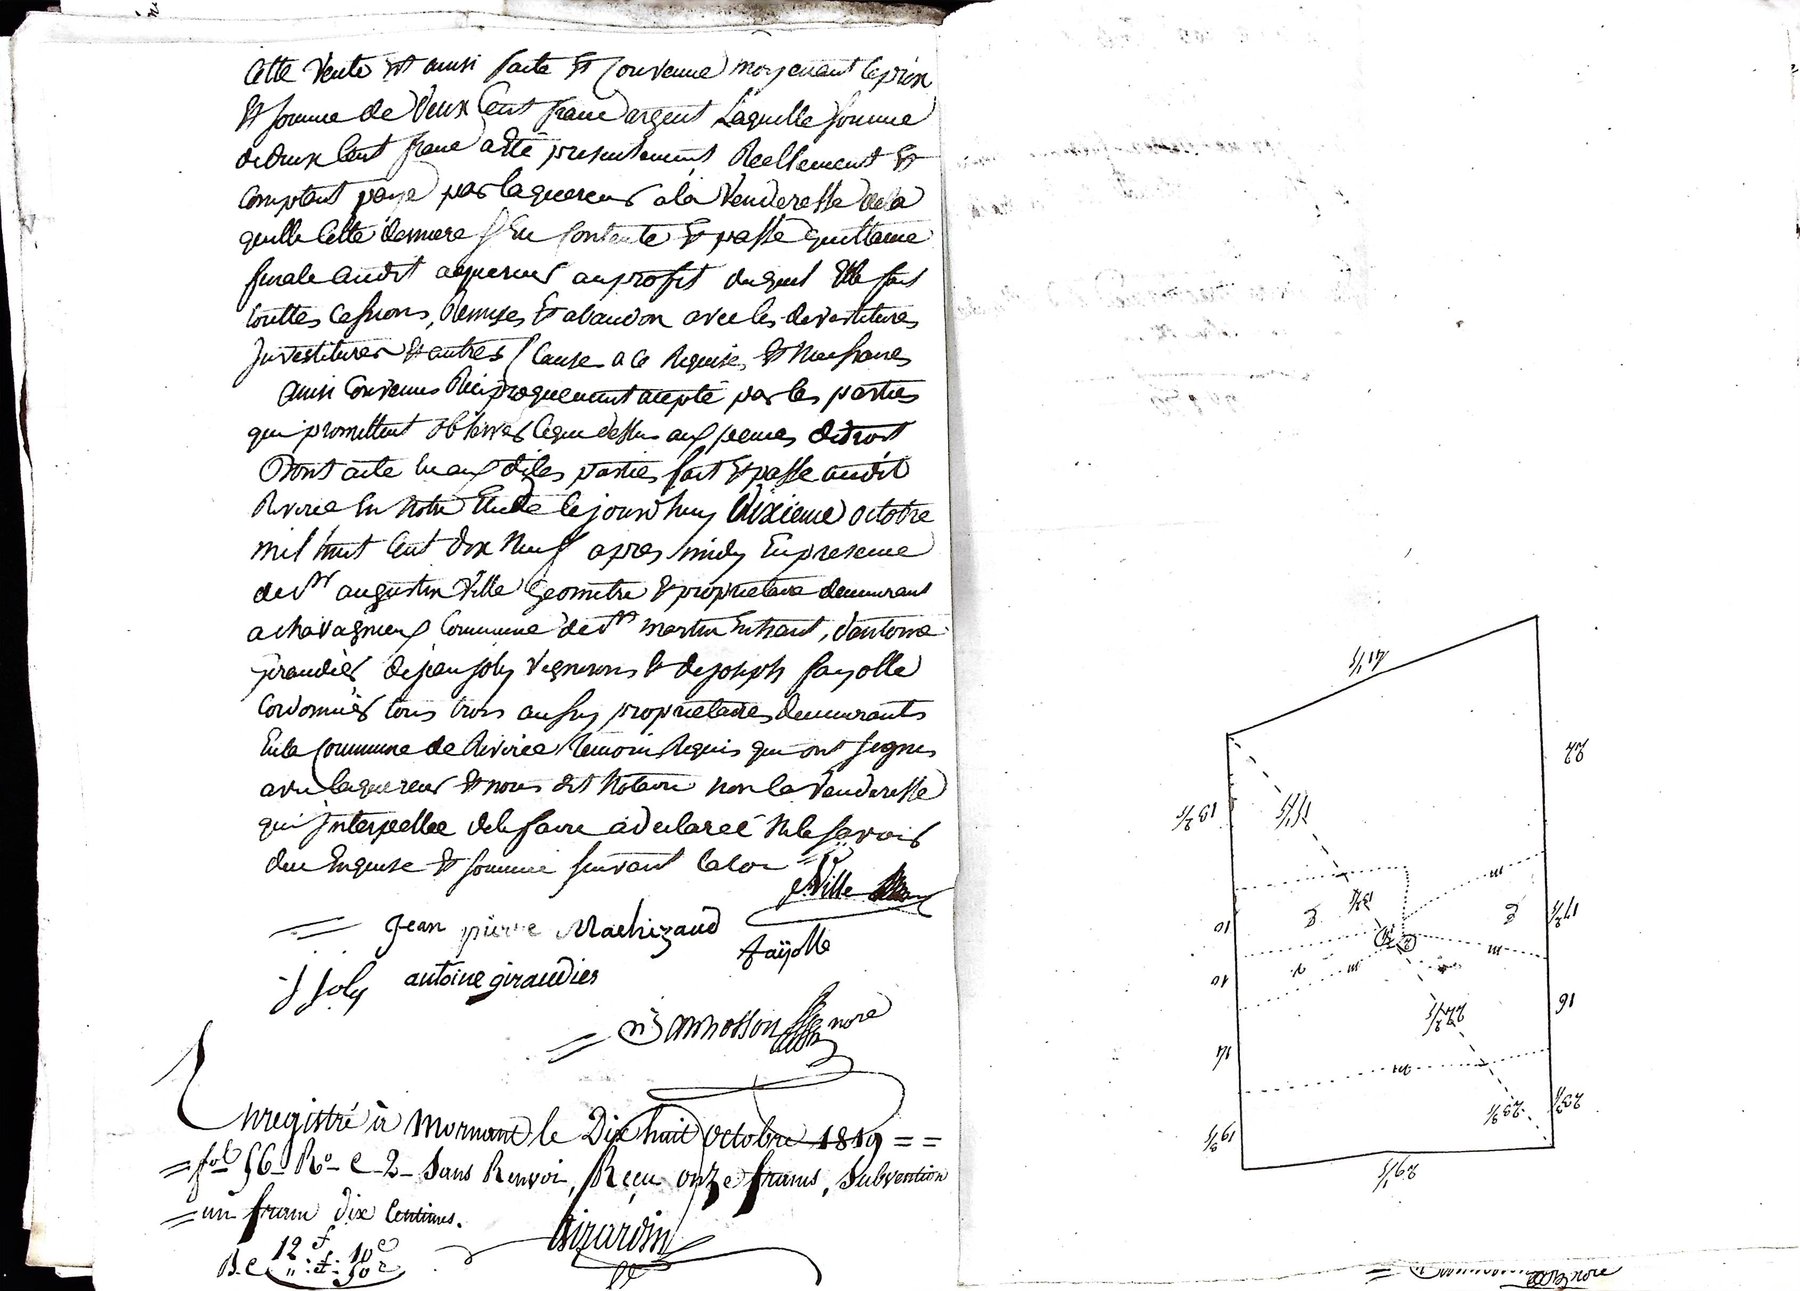 Cette vente est ainsi faite et Convenue moyenant le prix
et somme de Deux Cent franc argent Laquelle somme
de deux Cent franc a Eté presentement Reellement et
comptant payé par laquereur a la Venderesse de la
quelle Cette derniere sen contente et passe quittance
finale audit aquereur au profit duquel Elle fait
touttes Cessions, Remises et abandon avec les devestitures
Investitures et autres Clauses a ce Requises et Necessaires
ainsi Convenus Réciproquement acepté par les parties
qui promettent observer lequel dessus aux peines de droit
Dont acte lu aux dites parties fait et passé audit
Riverie En Notre Etude le jourdhuy dixieme octobre
mil huit Cent dix Neuf apres midy En presence
de Sr augustin Ville Geometre et proprietaire demeurant
a chavagneux Commune de St martin En haut, dantoine
giraudier de jean joly vignerons et de joseph fayolle
Cordonnier tous trois aussy proprietaires demeurants
En la Commune de Riverie temoin Requis qui ont signes
avec laquereur et nous dit Notaire non la Venderesse
qui Interpellee de le faire a declareé Ne le savoir
due Enquise et sommée suivant la loi
Ville
Jean pierre Machizaud
fayolle
J Joly antoine giraudier
nore
Enregistré à Mornant le Dix huit Octobre 1819 = =
= fol 56 Ro C 2 Sans Renvoi, Reçu onze francs, Subvention
= un franc dix Centimes.
Girardin
12 f 10 c
41 1/3
24
15 2/3
17 1/3
13 2/3
10
17 2/3
m
m
m
10
16
22 2/3
14
m
23 2/3
23 2/3
19 2/3
29 1/3
nore